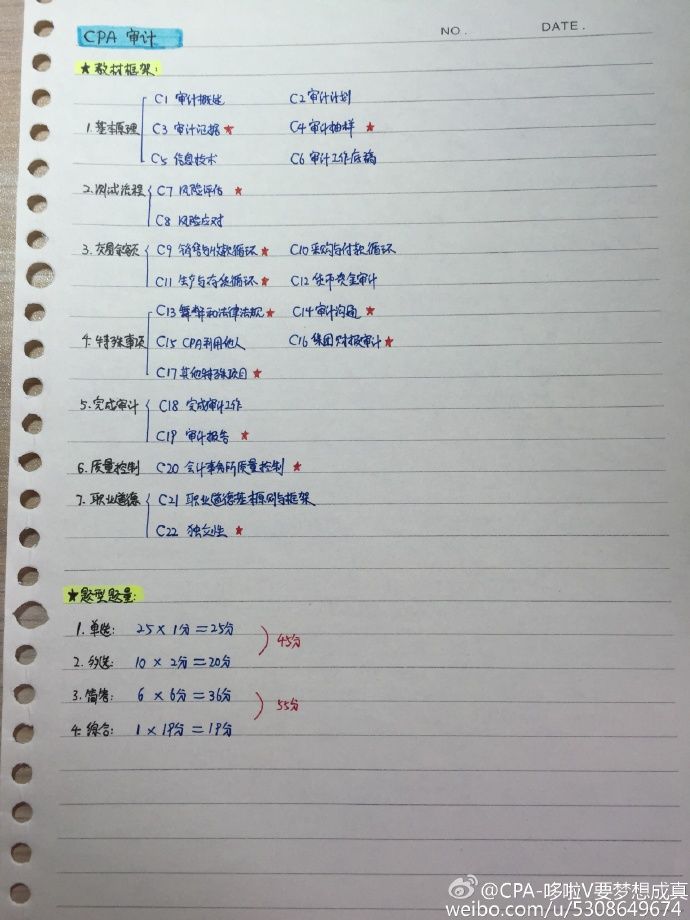 CPA 审计
NO. DATE.
★教材框架:
C1 审计概述 C2 审计计划
1. 基本原理 C3 审计证据★ C4 审计抽样★
C5 信息技术 C6 审计工作底稿
2. 测试流程 C7 风险评估★
C8 风险应对
3. 交易余额 C9 销售与收款循环★ C10 采购与付款循环
C11 生产与存货循环★ C12 货币资金审计
C13 舞弊和法律法规★ C14 审计沟通★
4. 特殊事项 C15 CPA利用他人 C16 集团财报审计★
C17 其他特殊项目★
5. 完成审计 C18 完成审计工作
C19 审计报告★
6. 质量控制 C20 会计事务所质量控制★
7. 职业道德 C21 职业道德基本原则与框架
C22 独立性★
★题型题量:
1. 单选: 25×1分=25分
45分
2. 多选: 10×2分=20分
3. 简答: 6×6分=36分
55分
4. 综合: 1×19分=19分
@CPA-哆啦V要梦想成真
weibo.com/u/5308649674